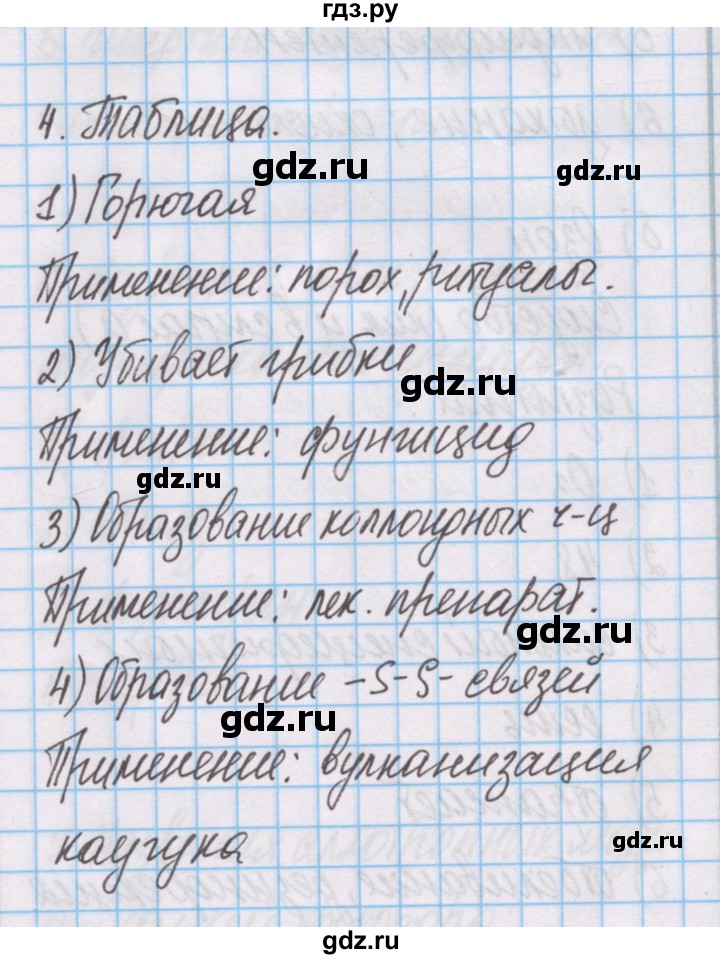 гдз.ру
4. Таблица.
gdz.ru
gdz.ru
1) Горючая
Применение: порох, ритуалы.
2) Убивает грибки
gdz.ru
Применение: фунгицид
gdz.ru
3) Образование коллоидных ч-ц
Применение: лек. препарат.
gdz.ru
4) Образование -S-S- связей
gdz.ru
Применение: вулканизация
каучука
gdz.ru
gdz.ru